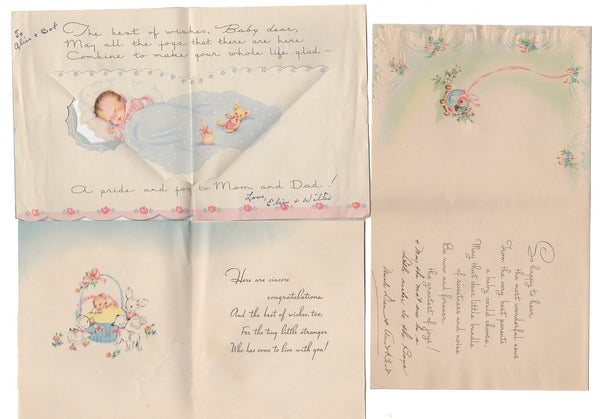 To
Alice + Bob
The best of wishes, Baby dear,
May all the joys that there are here
Combine to make your whole life glad —
A pride and joy to Mom and Dad!
Love,
Elsie + Willie
Here are sincere
congratulations
And the best of wishes, too,
For the tiny little stranger
Who has come to live with you!
So happy to hear
the most wonderful news
From the very best parents
a baby could choose,
May that dear little bundle
of sweetness and noise
Be now and forever
the greatest of joys!
+ May the next one be a
Uncle